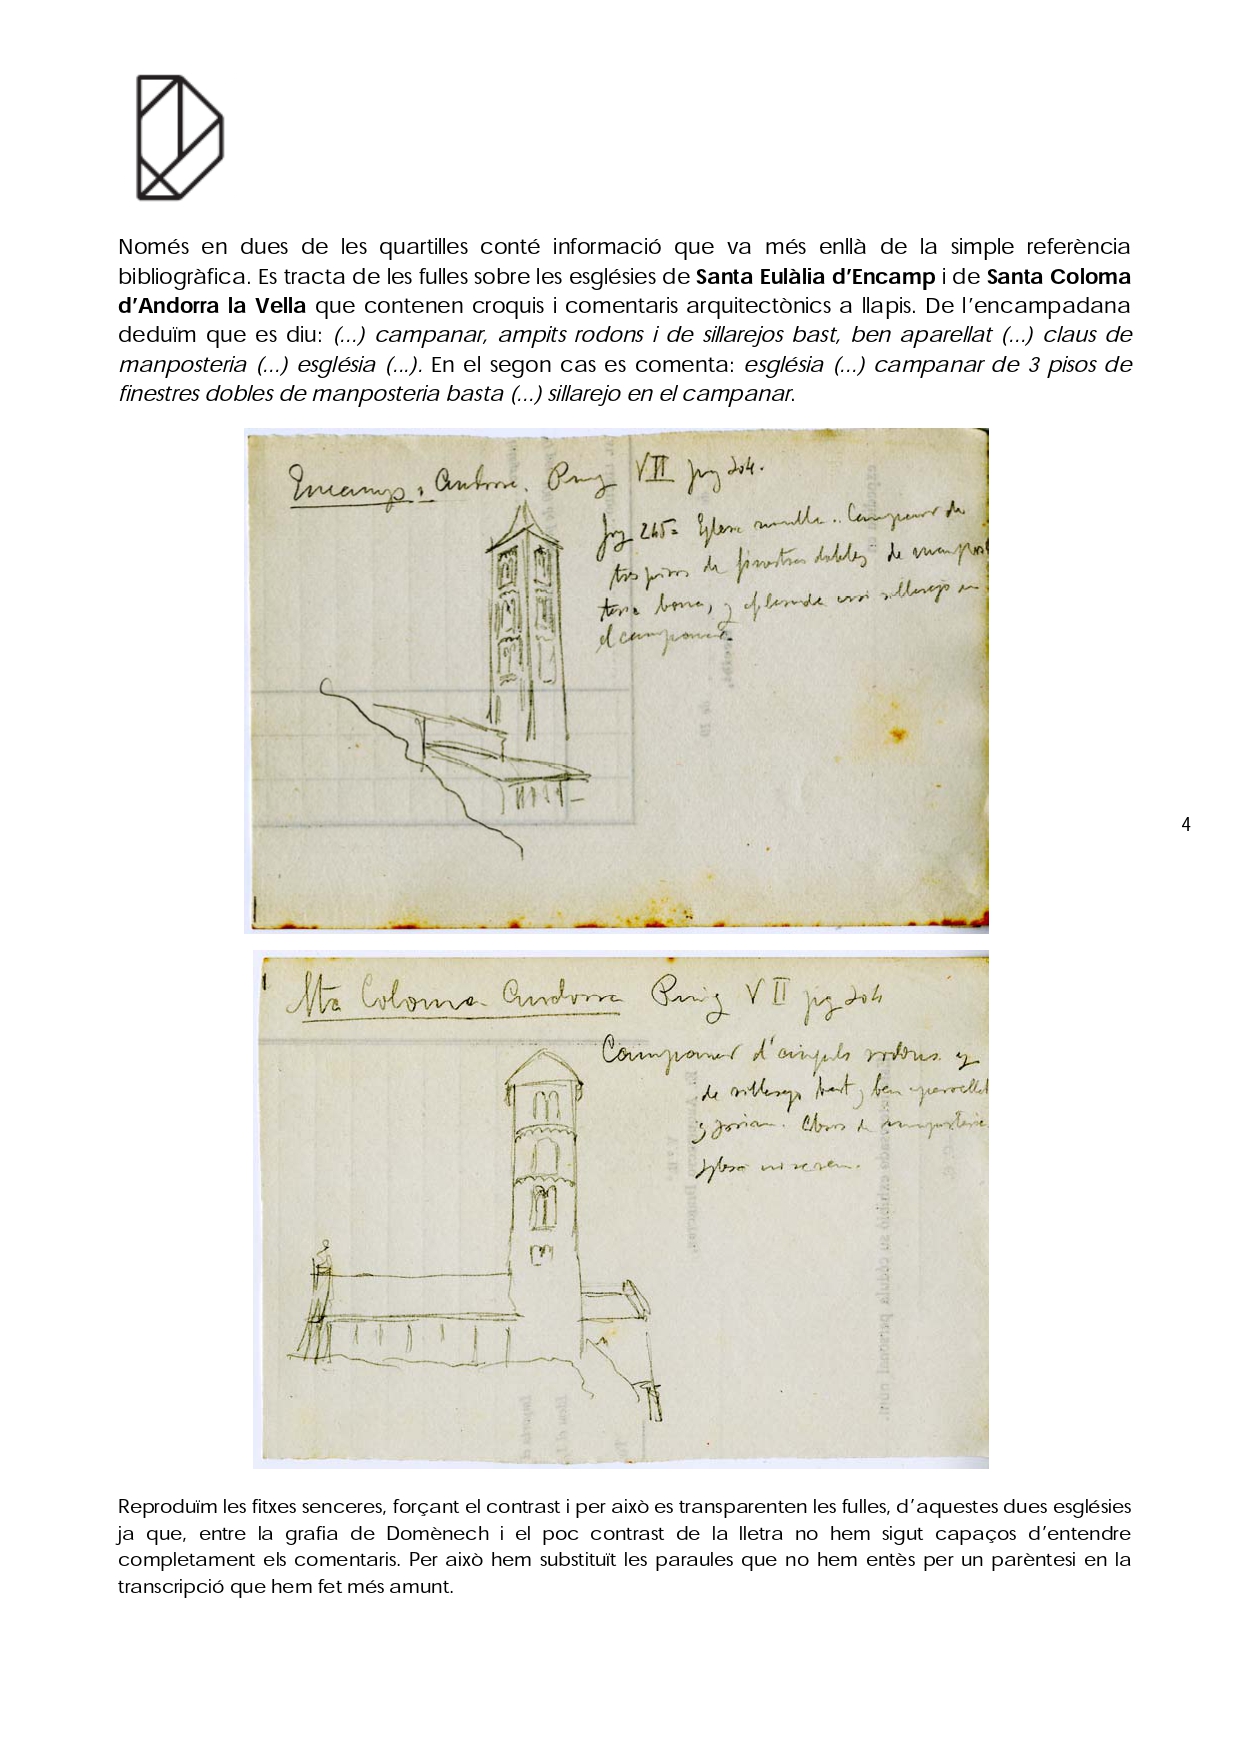 Només en dues de les quartilles conté informació que va més enllà de la simple referència
bibliogràfica. Es tracta de les fulles sobre les esglésies de Santa Eulàlia d'Encamp i de Santa Coloma
d'Andorra la Vella que contenen croquis i comentaris arquitectònics a llapis. De l'encampadana
deduïm que es diu: (...) campanar, ampits rodons i de sillarejos bast, ben aparellat (...) claus de
manposteria (...) església (...). En el segon cas es comenta: església (...) campanar de 3 pisos de
finestres dobles de manposteria basta (...) sillarejo en el campanar.
Encamp: Andorra. Puig VII pag 204.
pag 245= Iglesia senzilla.. Campanar de
tres pisos de finestras dobles de manpos
teria
sillarejo en
el campanar.
4
Sta Coloma Andorra Puig VII pag 204
Campanar d'anguls rodons y
de sillarejo bast y ben aparellat
de manposteria
Iglesia
Reproduïm les fitxes senceres, forçant el contrast i per això es transparenten les fulles, d'aquestes dues esglésies
ja que, entre la grafia de Domènech i el poc contrast de la lletra no hem sigut capaços d'entendre
completament els comentaris. Per això hem substituït les paraules que no hem entès per un parèntesi en la
transcripció que hem fet més amunt.